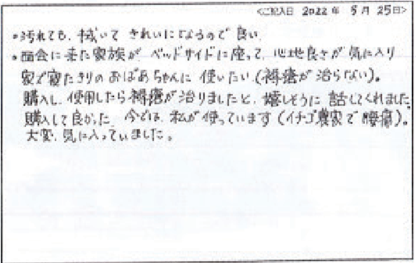 <ご記入日 2022年 5月 25日>
・汚れても、拭いて きれいになるので良い
・面会に来た家族が ベッドサイドに座って、心地良さが気に入り
家で寝たきりのおばあちゃんに 使いたい(褥瘡が治らない)。
購入し、使用したら褥瘡が治りましたと、嬉しそうに 話してくれました
購入して良かった 今では、私が使っています(イチゴ農家で腰痛)。
大変、気に入っていました。